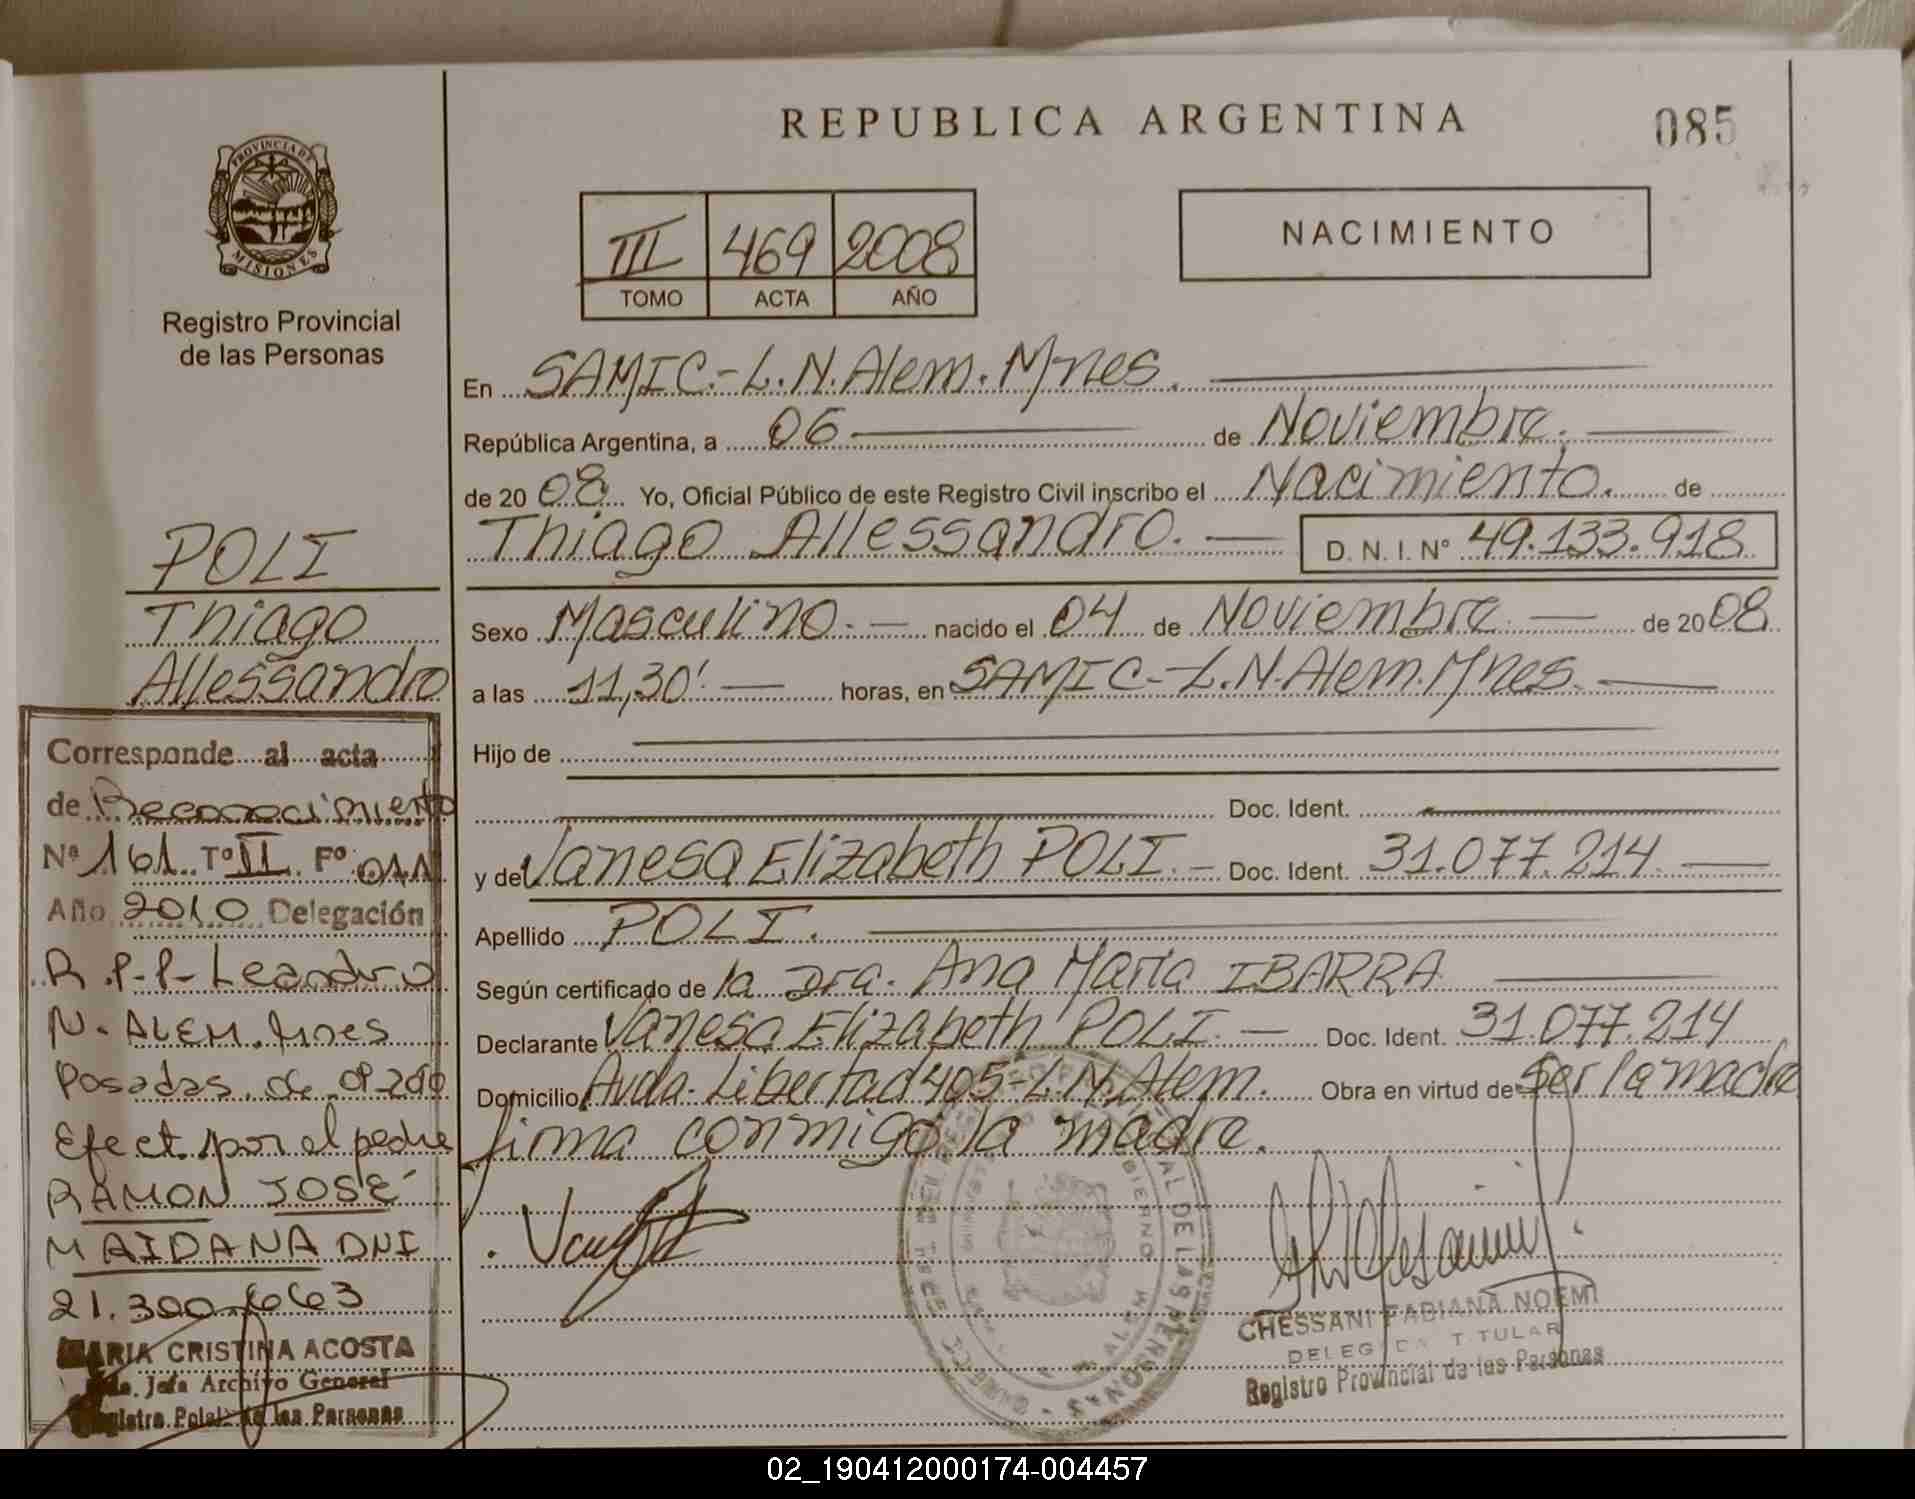 REPUBLICA ARGENTINA
085
PROVINCIA DE
MISIONES
Registro Provincial
de las Personas
III 469 2008
TOMO ACTA AÑO
NACIMIENTO
En SAMIC.-L.N.Alem.Mnes.
República Argentina, a 06 de Noviembre.
de 2008 Yo, Oficial Público de este Registro Civil inscribo el Nacimiento. de
Thiago Allessandro. D. N. I. Nº 49.133.918
Sexo Masculino. nacido el 04 de Noviembre de 2008
a las 11,30'. horas, en SAMIC-L.N.Alem.Mnes.
Hijo de
Doc. Ident.
y de Vanesa Elizabeth POLI. Doc. Ident. 31.077.214
Apellido POLI.
Según certificado de la Dra. Ana María IBARRA
Declarante Vanesa Elizabeth POLI. Doc. Ident. 31.077.214
Domicilio Avda. Libertad 405-L.N.Alem. Obra en virtud de ser la madre
firma conmigo la madre.
CHESSANI FABIANA NOEMI
DELEGADA TITULAR
Registro Provincial de las Personas
POLI
Thiago
Allessandro
Corresponde al acta
de Reconocimiento
Nº 161 Tº II Fº 011
Año 2010 Delegación
R.P.P- Leandro
N. ALEM. Mnes
Posadas, de
Efect. por el padre
RAMON JOSÉ
MAIDANA DNI
21.300.663
MARIA CRISTINA ACOSTA
Jefa Archivo General
de las Personas
02_190412000174-004457